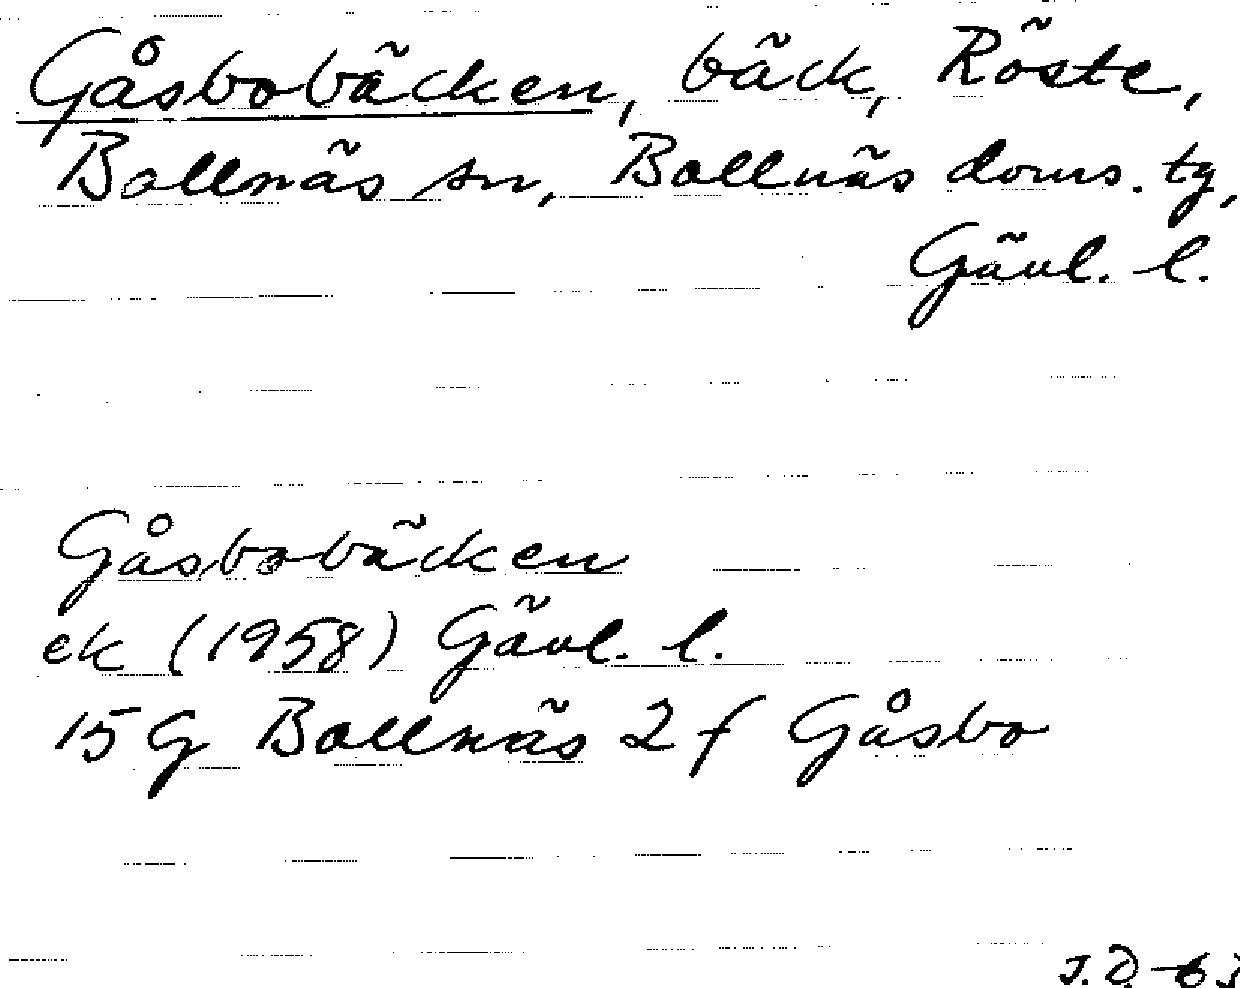 Gåsbobäcken, bäck, Röste,
Bollnäs sn, Bollnäs doms. tg,
Gävl. l.
Gåsbobäcken
ek (1958) Gävl. l.
15 G Bollnäs 2 f Gåsbo
J.D-63